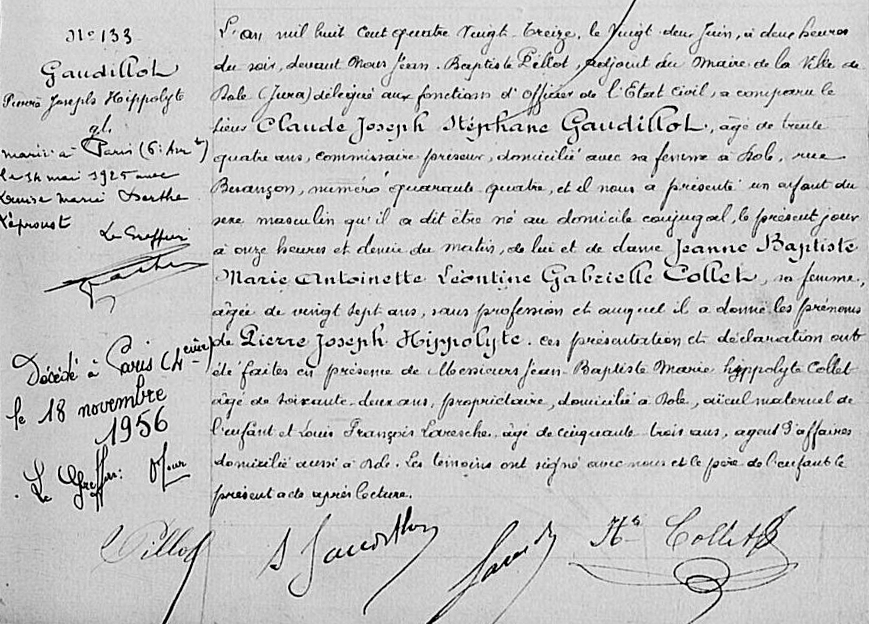 N° 133
Gaudillot
Pierre Joseph Hippolyte
marié à Paris (6e Arrt)
le 14 mai 1925 avec
Louise Marie Berthe
Léproust
Le Greffier
Décédé à Paris (4ème)
le 18 novembre
1956
Le Greffier:
L'an mil huit cent quatre vingt-treize, le vingt deux Juin, à deux heures
du soir, devant Nous Jean-Baptiste Pillot, adjoint du Maire de la Ville de
Dole (Jura) délégué aux fonctions d'Officier de l'Etat Civil, a comparu le
sieur Claude Joseph Stéphane Gaudillot, âgé de trente
quatre ans, commissaire priseur, domicilié avec sa femme à Dole, rue
Besançon, numéro quarante quatre, et il nous a présenté un enfant du
sexe masculin qu'il a dit être né au domicile conjugal, le présent jour
à onze heures et demie du matin, de lui et de dame Jeanne Baptiste
Marie Antoinette Léontine Gabrielle Collet, sa femme,
âgée de vingt sept ans, sans profession et auquel il a donné les prénoms
de Pierre Joseph Hippolyte. Ces présentation et déclaration ont
été faites en présence de Messieurs Jean-Baptiste Marie hyppolyte Collet
âgé de soixante-deux ans, propriétaire, domicilié à Dole, aïeul maternel de
l'enfant et Louis François Laresche, âgé de cinquante trois ans, agent d'affaires
domicilié aussi à Dole. Les témoins ont signé avec nous et le père de l'enfant le
présent acte après lecture.
Pillot
Hte Collet